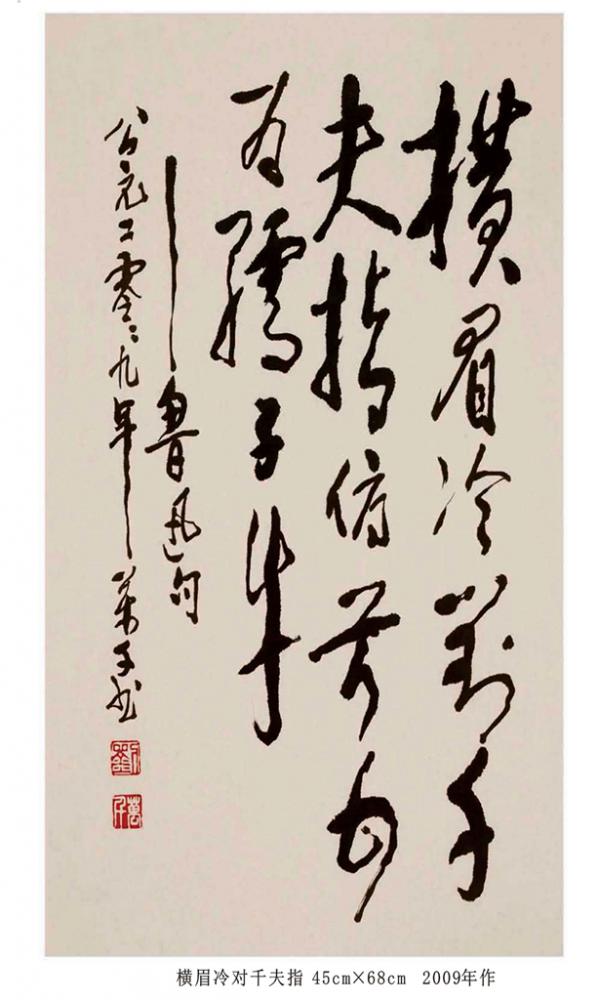 橫眉冷對千
夫指俯首甘
为孺子牛
魯迅句
公元二零〻九年萬千书
劉
萬千
横眉冷对千夫指 45cm×68cm 2009年作